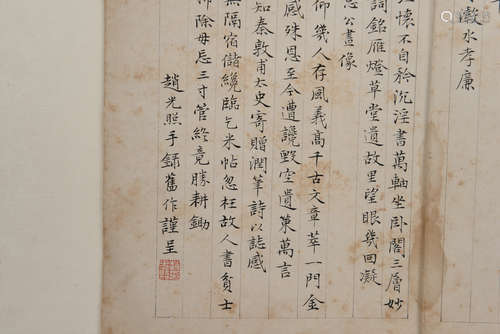 澉水孝廉
懷不自於沉淫書萬軸坐卧閣三層妙
詞銘雁燈草堂遺故里望眼幾回凝
公畫像
仰幾人存風義高千古文章萃一門金
感殊恩至今遭讒毀空遺葉萬言
知秦敦甫太史寄贈潤筆詩以誌感
無隔宿儲纔臨乞米帖忽枉故人書貧士
除毋忘三寸管終竟勝耕鋤
趙光照手録舊作謹呈